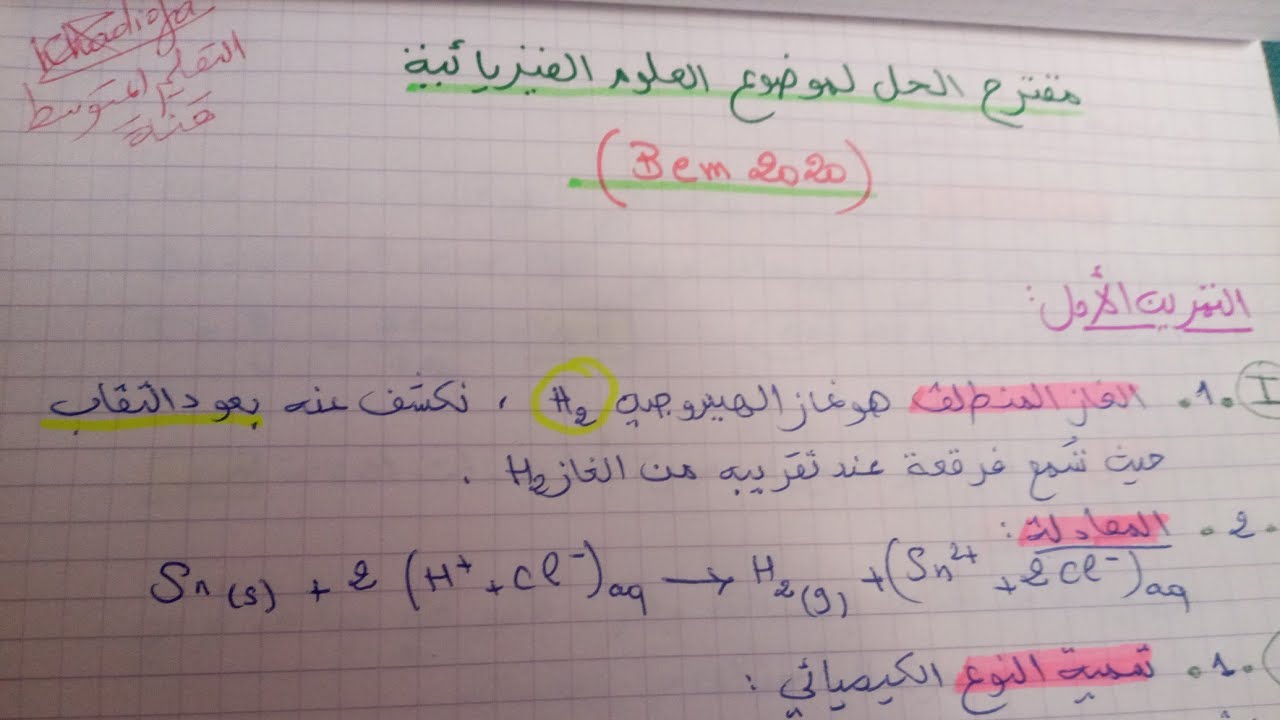 Khadidja
التعليم المتوسط
مقترح الحل لموضوع العلوم الفيزيائية
(Bem 2020)
التمرين الأول:
I 1. الغاز المنطلق هو غاز الهيدروجين H2 ، نكشف عنه بعود الثقاب
حيث تسمع فرقعة عند تقريبه من الغاز H2 .
2. المعادلة :
Sn(s) + 2 (H+ + Cl-)aq → H2(g) + (Sn2+ + 2Cl-)aq
1. تسمية النوع الكيميائي :